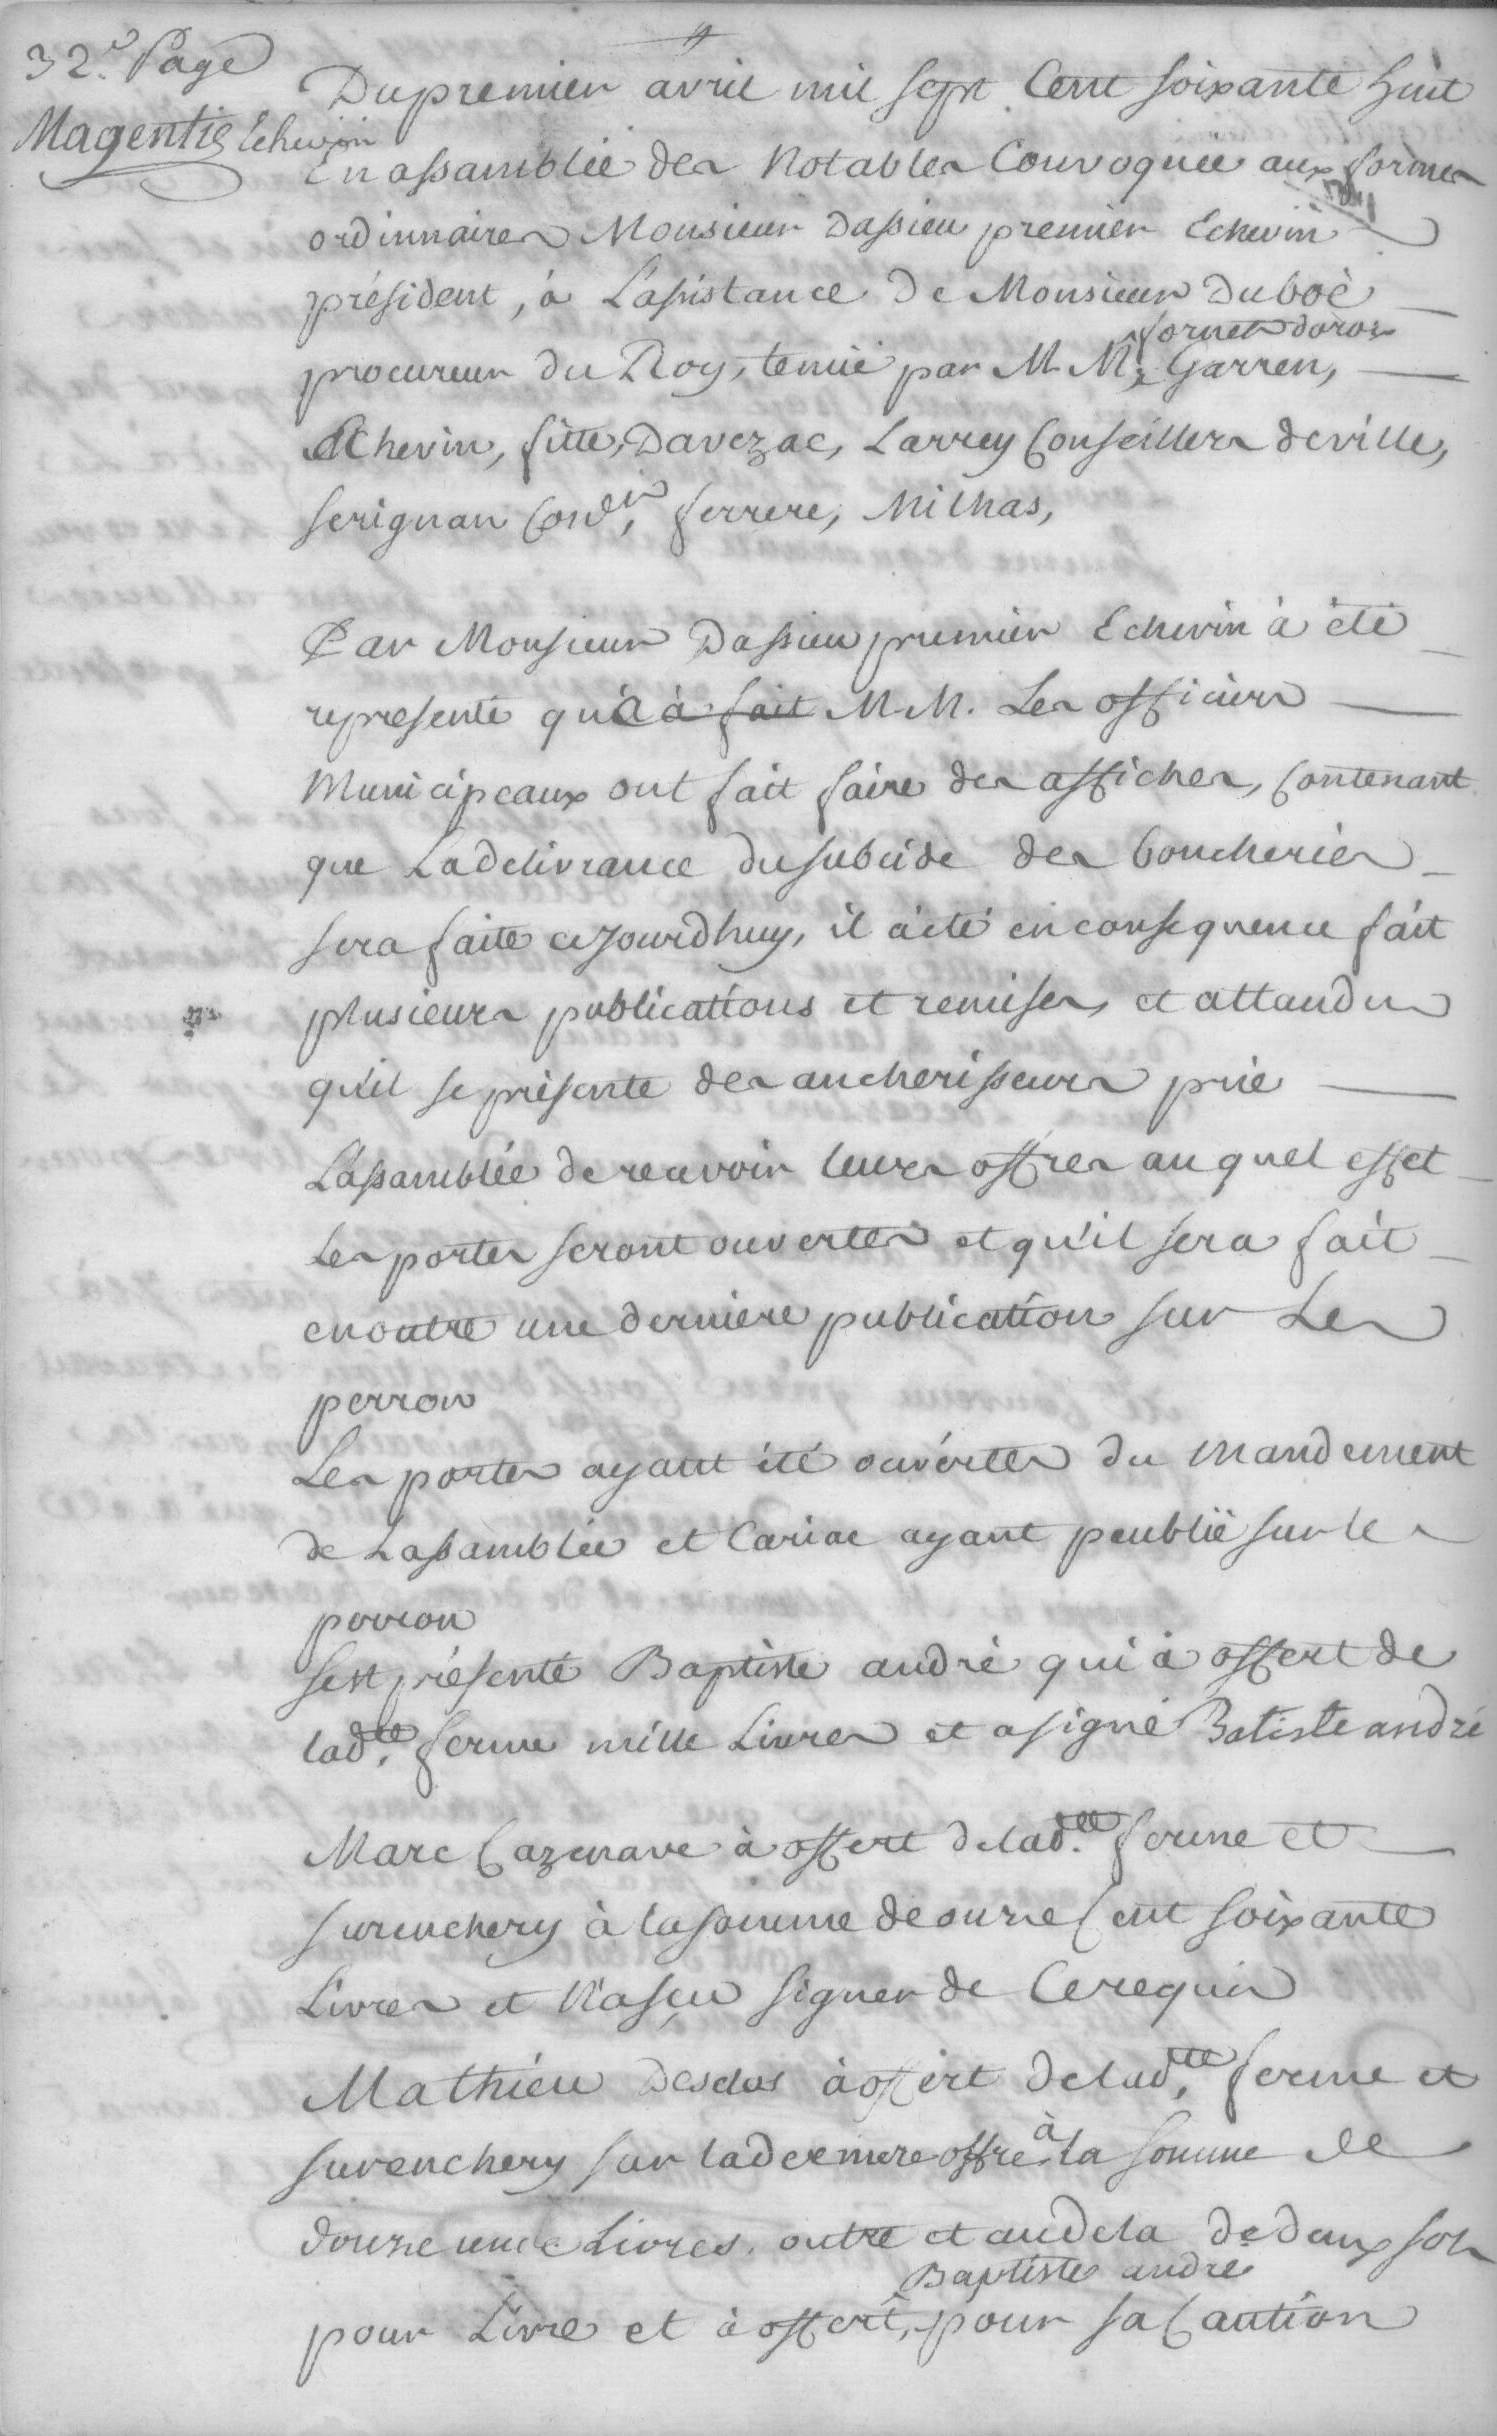 32.e Page
Magentie Echevin
Du premier avril mil sept Cent soixante huit
En assamblée des Notables Convoquée aux formes
ordinnaires Monsieur Dassieu premier Echevin
président, à L'assistance de Monsieur Duboë
fornets doros
procureur du Roy, tenüe par M. M. Garren,
Echevin, fitte, Davezac, Larrey Conseillers de ville,
serignan ferrere, Milhas,
Par Monsieur Dassieu premier Echevin à été
represente qu'il à fait M. M. Les officiers
Municipeaux ont fait faire des affiches, Contenant
que La delivrance du subcide des boucheries
sera faite cejourdhuy, il à été en consequence fait
plusieurs publications et remises, et attandu
qu'il se présente des ancherisseurs prie
L'assamblée de recevoir leurs offres au quel effet
Les portes seront ouvertes et qu'il sera fait
en outre une derniere publication sur Le
perron
Les portes ayant été ouvertes du mandement
de Lassamblée et Cariac ayant peublié sur le
perron
sest présenté Baptiste andré qui à offert de
ladte. ferme mille Livres et a signé Batiste andré
Marc Cazenave à offert de ladte. ferme et
surenchery à la somme de onze Cent soixante
Livres et N'a sçu signer de Ce requis
Mathieu Desclas à offert de ladte. ferme et
surenchery sur la derniere offre à la somme de
douze cens Livres. outre et au dela de deux sols
Baptiste andré
pour Livre et à offert, pour sa Caution